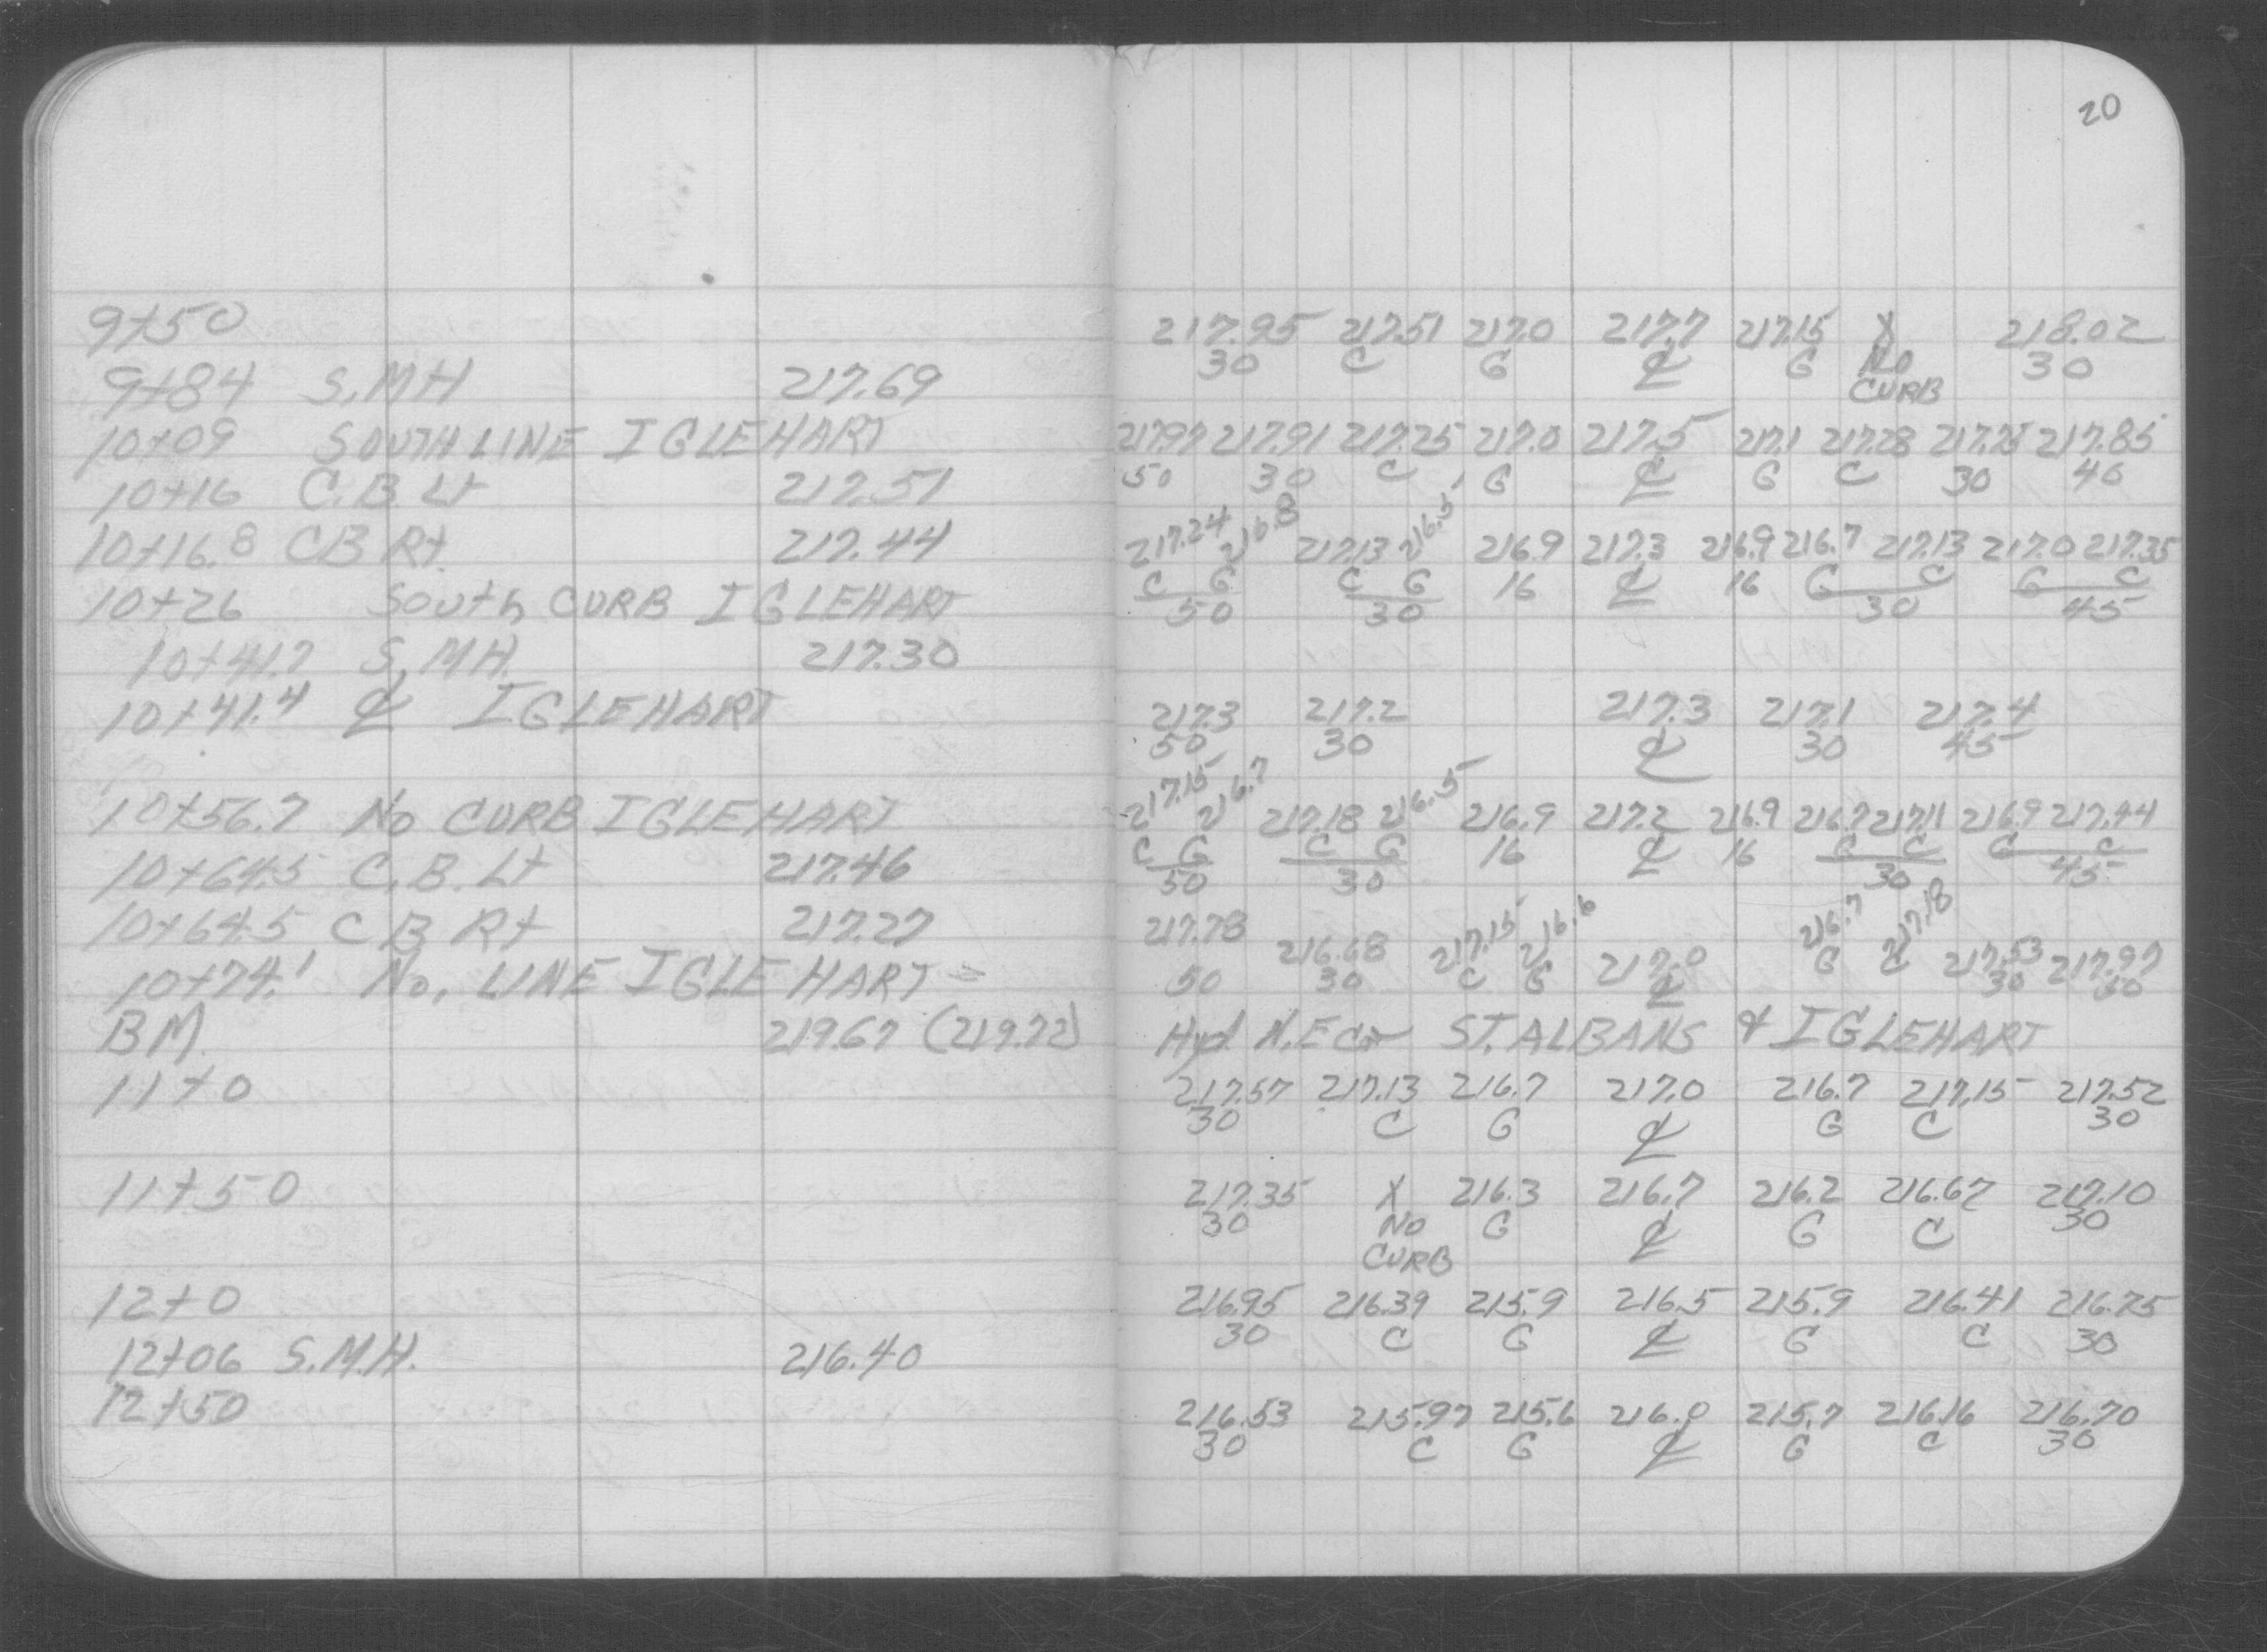 20
9+50
9+84 S.MH 217.69
10+09 SOUTH LINE IGLEHART
10+16 C.B. Lt 217.51
10+16.8 CB Rt. 217.44
10+26 South CURB IGLEHART
10+41.7 S.MH. 217.30
10+41.4 ℄ IGLEHART
10+56.7 No CURB IGLEHART
10+64.5 C.B. Lt 217.46
10+64.5 CB Rt 217.27
10+74.1 No. LINE IGLEHART
BM 219.67 (219.72)
11+0
11+50
12+0
12+06 S.M.H. 216.40
12+50
217.95 217.51 217.0 217.7 217.15 X 218.02
30 C G ℄ G No 30
CURB
217.97 217.91 217.25 217.0 217.5 217.1 217.28 217.75 217.85
50 30 C G ℄ G C 30 46
217.24 216.8 217.13 216.5 216.9 217.3 216.9 216.7 217.13 217.0 217.35
C G C G 16 ℄ 16 G C G C
50 30 30 45
217.3 217.2 217.3 217.1 217.4
50 30 ℄ 30 45
217.15 216.7 217.18 216.5 216.9 217.2 216.9 216.7 217.11 216.9 217.44
C G C G 16 ℄ 16 G C G C
50 30 30 45
217.78 216.68 217.15 216.6 217.0 216.7 217.18 217.53 217.97
50 30 C G ℄ G C 30 50
Hyd N.E Cor ST. ALBANS & IGLEHART
217.57 217.13 216.7 217.0 216.7 217.15 217.52
30 C G ℄ G C 30
217.35 X 216.3 216.7 216.2 216.67 217.10
30 NO G ℄ G C 30
CURB
216.95 216.39 215.9 216.5 215.9 216.41 216.75
30 C G ℄ G C 30
216.53 215.97 215.6 216.0 215.7 216.16 216.70
30 C G ℄ G C 30